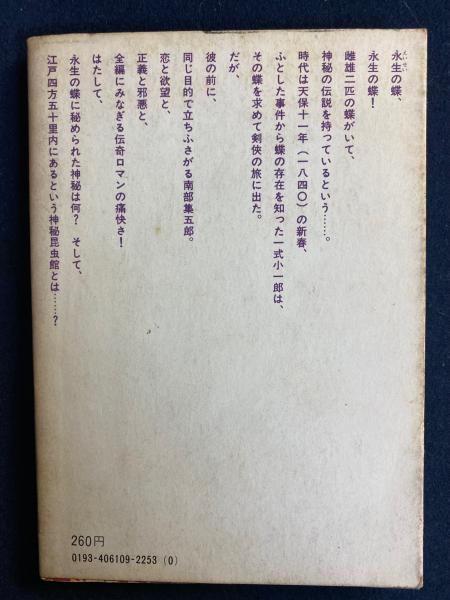 永生の蝶、
永生の蝶!
雌雄二匹の蝶がいて、
神秘の伝説を持っているという……。
時代は天保十一年(一八四〇)の新春、
ふとした事件から蝶の存在を知った一式小一郎は、
その蝶を求めて剣侠の旅に出た。
だが、
彼の前に、
同じ目的で立ちふさがる南部集五郎。
恋と欲望と、
正義と邪悪と、
全編にみなぎる伝奇ロマンの痛快さ!
はたして、
永生の蝶に秘められた神秘は何? そして、
江戸四方五十里内にあるという神秘昆虫館とは……?
260円
0193-406109-2253 (0)